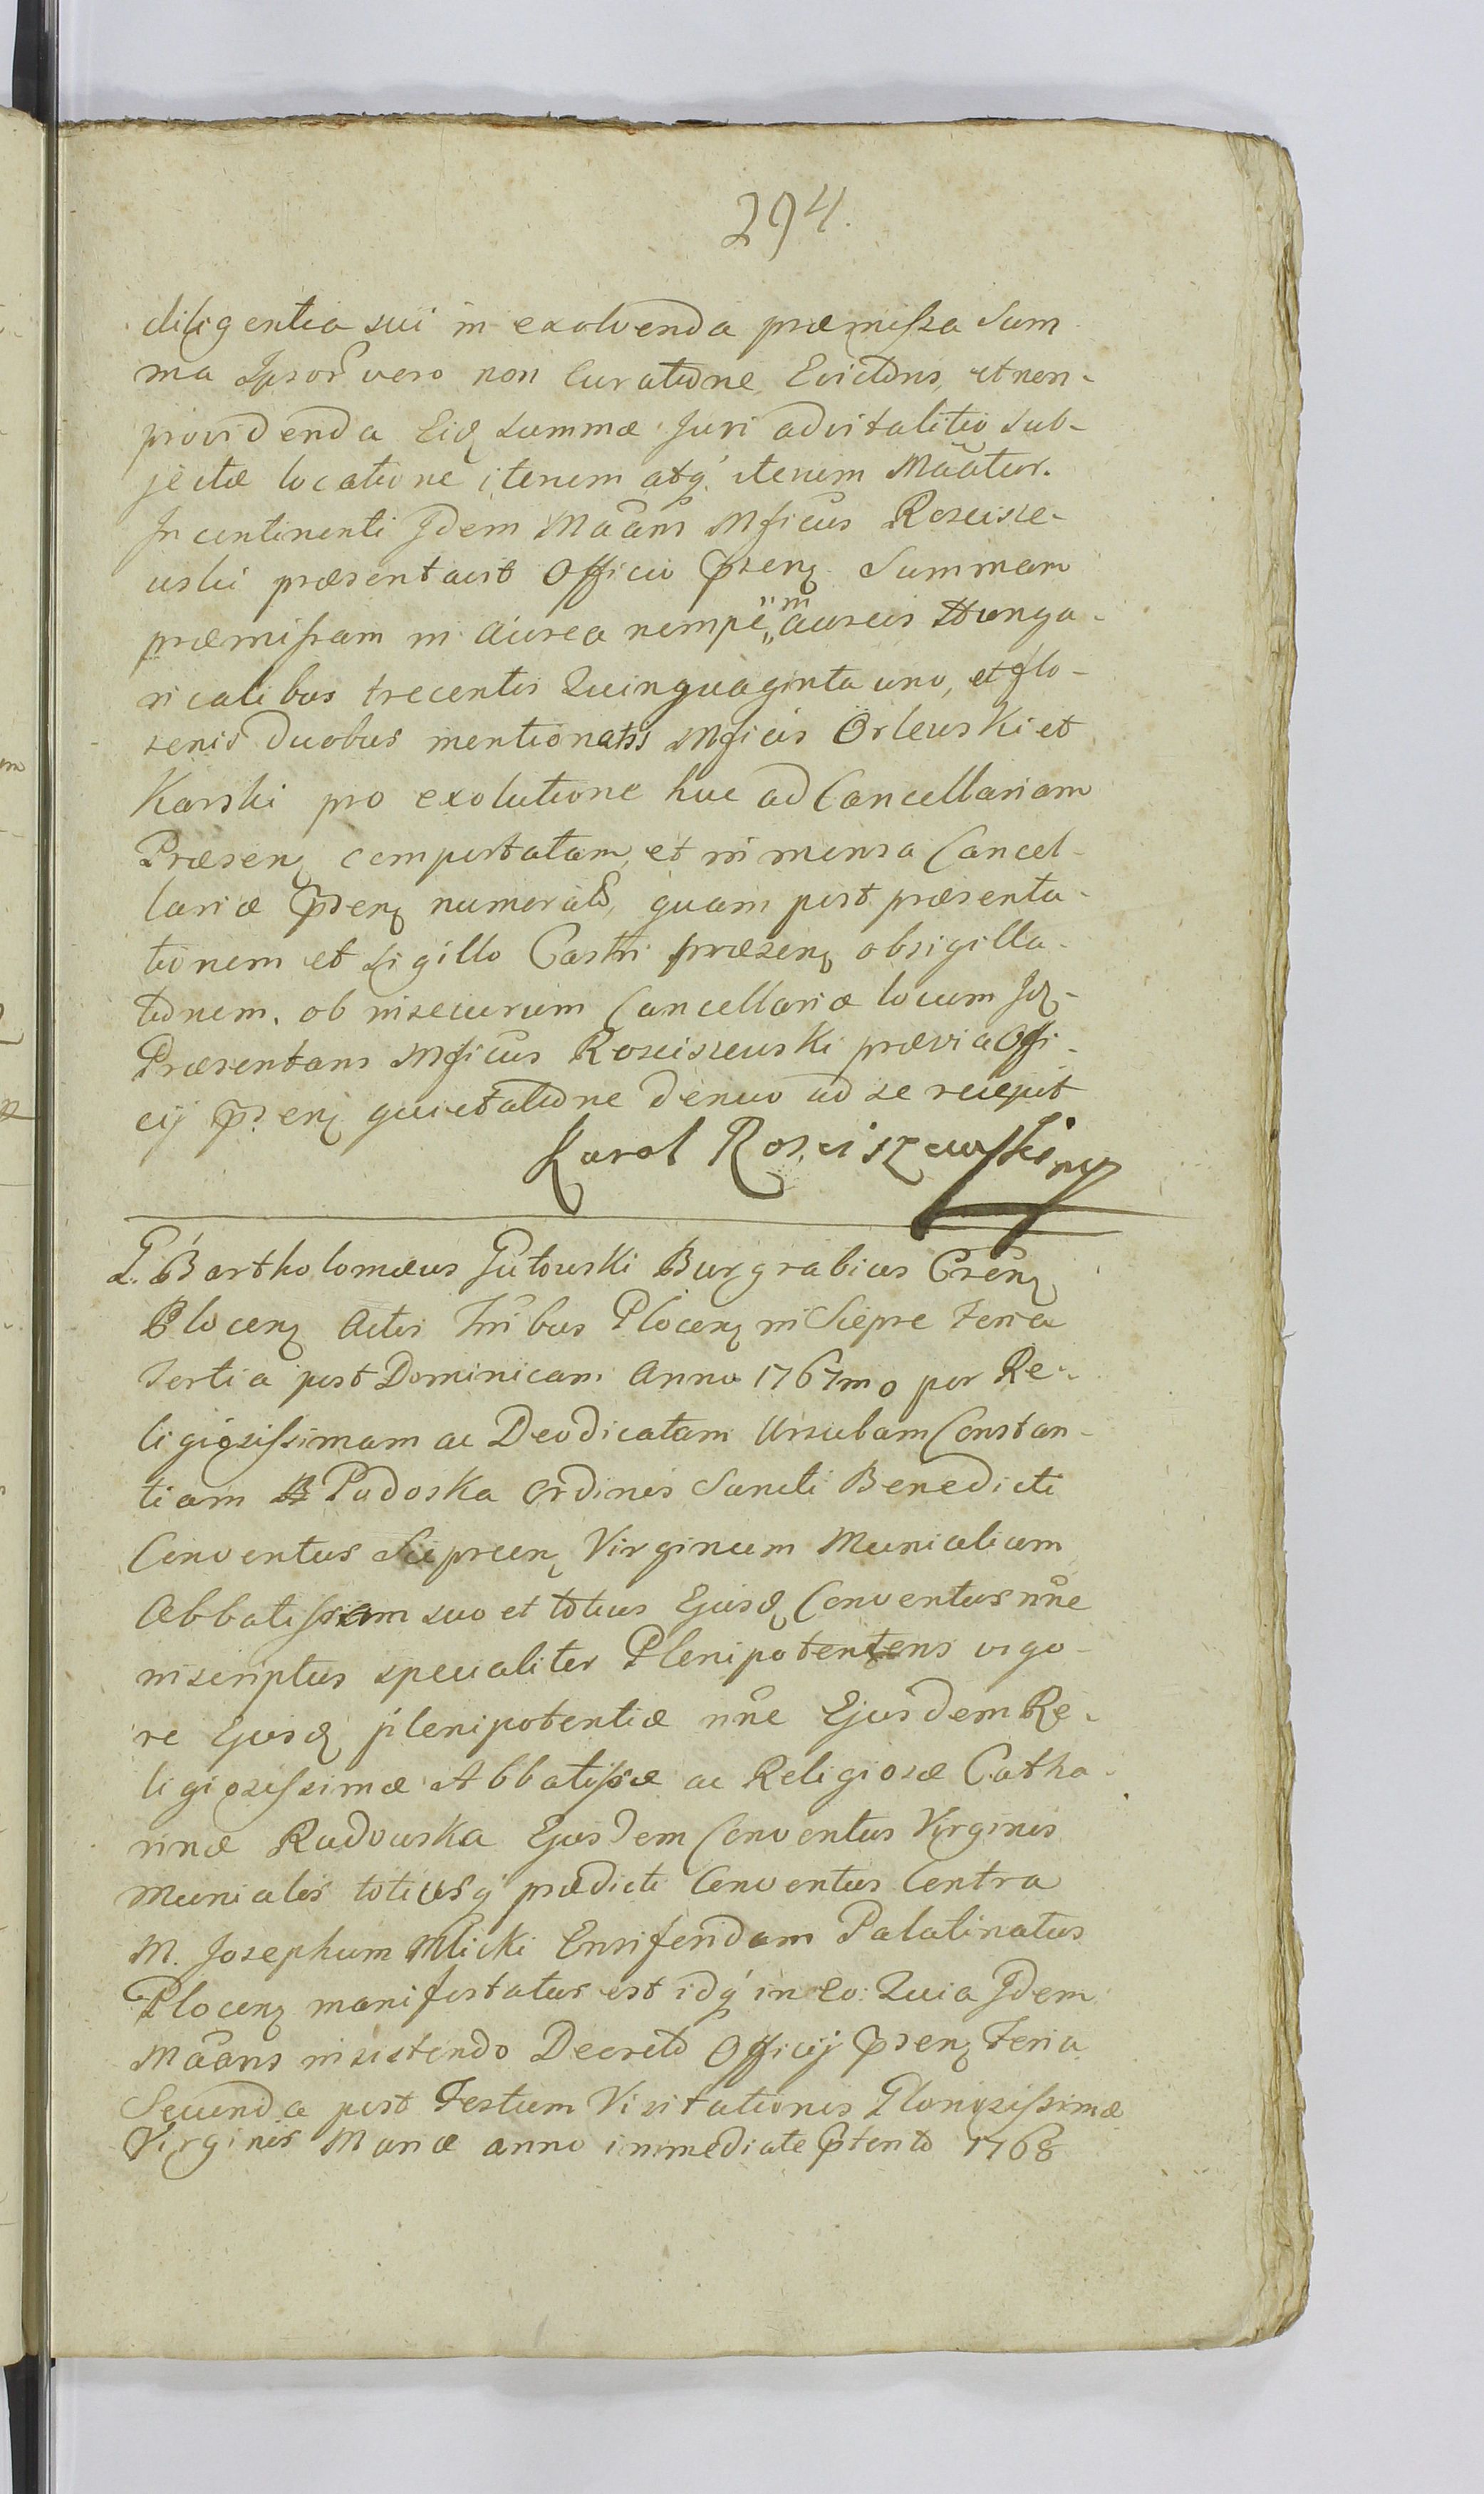 294.
diligentia sui in exolvenda præmissa Sum
ma Ipsor̃ vero non Curatione Evictoris, et non-
providenda Eidę summæ Juri advitalitio sub-
jectæ locatione iterum atq́ iterum Mãatur.
In continenti Idem Mãans Mficus Roscisze-
wski præsentavit Officio Pñsenę Summam
præmissam in Aurea nempe "in" aureis Hunga-
ricalibus trecentis Quinquaginta uno, et flo-
renis Duobus mentionatis Mficis Orlewski et
Karski pro exolutione huc ad Cancellariam
Præsenę comportatam, et in mensa Cancel-
lariæ Pñsenę numeratã, quam post præsenta-
tionem et Sigillo Castri præsenę obsigilla-
tionem, ob insecurum Cancellariæ locum Idę-
Præsentans Mficus Rosciszewski prævia Offi-
cij Pñsenę quietatione Denuo ad se recepit
Karol Rosciszewski mp
G. Bartholomæus Gutowski Burgrabius Cs̃renę
Plocenę Actis Tñribus Plocenę in Siepre Feria
Tertia post Dominicam Anno 1767mo per Re-
ligiosissimam ac Deodicatam Ursulam Constan-
tiam Podoska Ordinis Sancti Benedicti
Conventus Sieprcenę Virginum Monialium
Abbatissam suo et totius Ejusdę Conventus nñe
inscriptus specialiter Plenipotens vigo-
re Ejusdę plenipotentiæ nñe Ejusdem Re-
ligiosissimæ Abbatissæ ac Religiosæ Catha-
rinæ Radowska Ejusdem Conventus Virginis
Monialis totiusq́ prædicti Conventus Contra
M. Josephum Mlicki Ensiferidam Palatinatus
Plocenę manifestatus est idq́ in eo: Quia Idem
Mãans insistendo Decreto Officij Pñsenę Feria
Secunda post Festum Visitationis Gloriosissimæ
Virginis Mariæ anno immediate Pt̃erito 1768